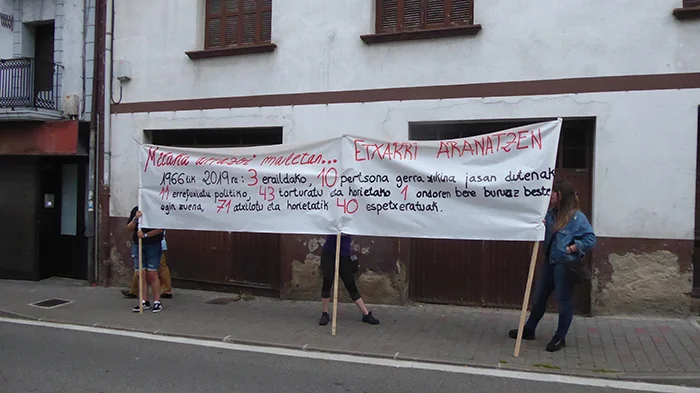 ETXARRI ARANATZEN
1966tik 2019ra: 3 eraildako 10 pertsona gerra zikina jasan dutenak
11 errefuxiatu politiko, 43 torturatu eta horietako 1 ondoren bere buruaz beste
egin zuena, 71 atxilotu eta horietatik 40 espetxeratuak.